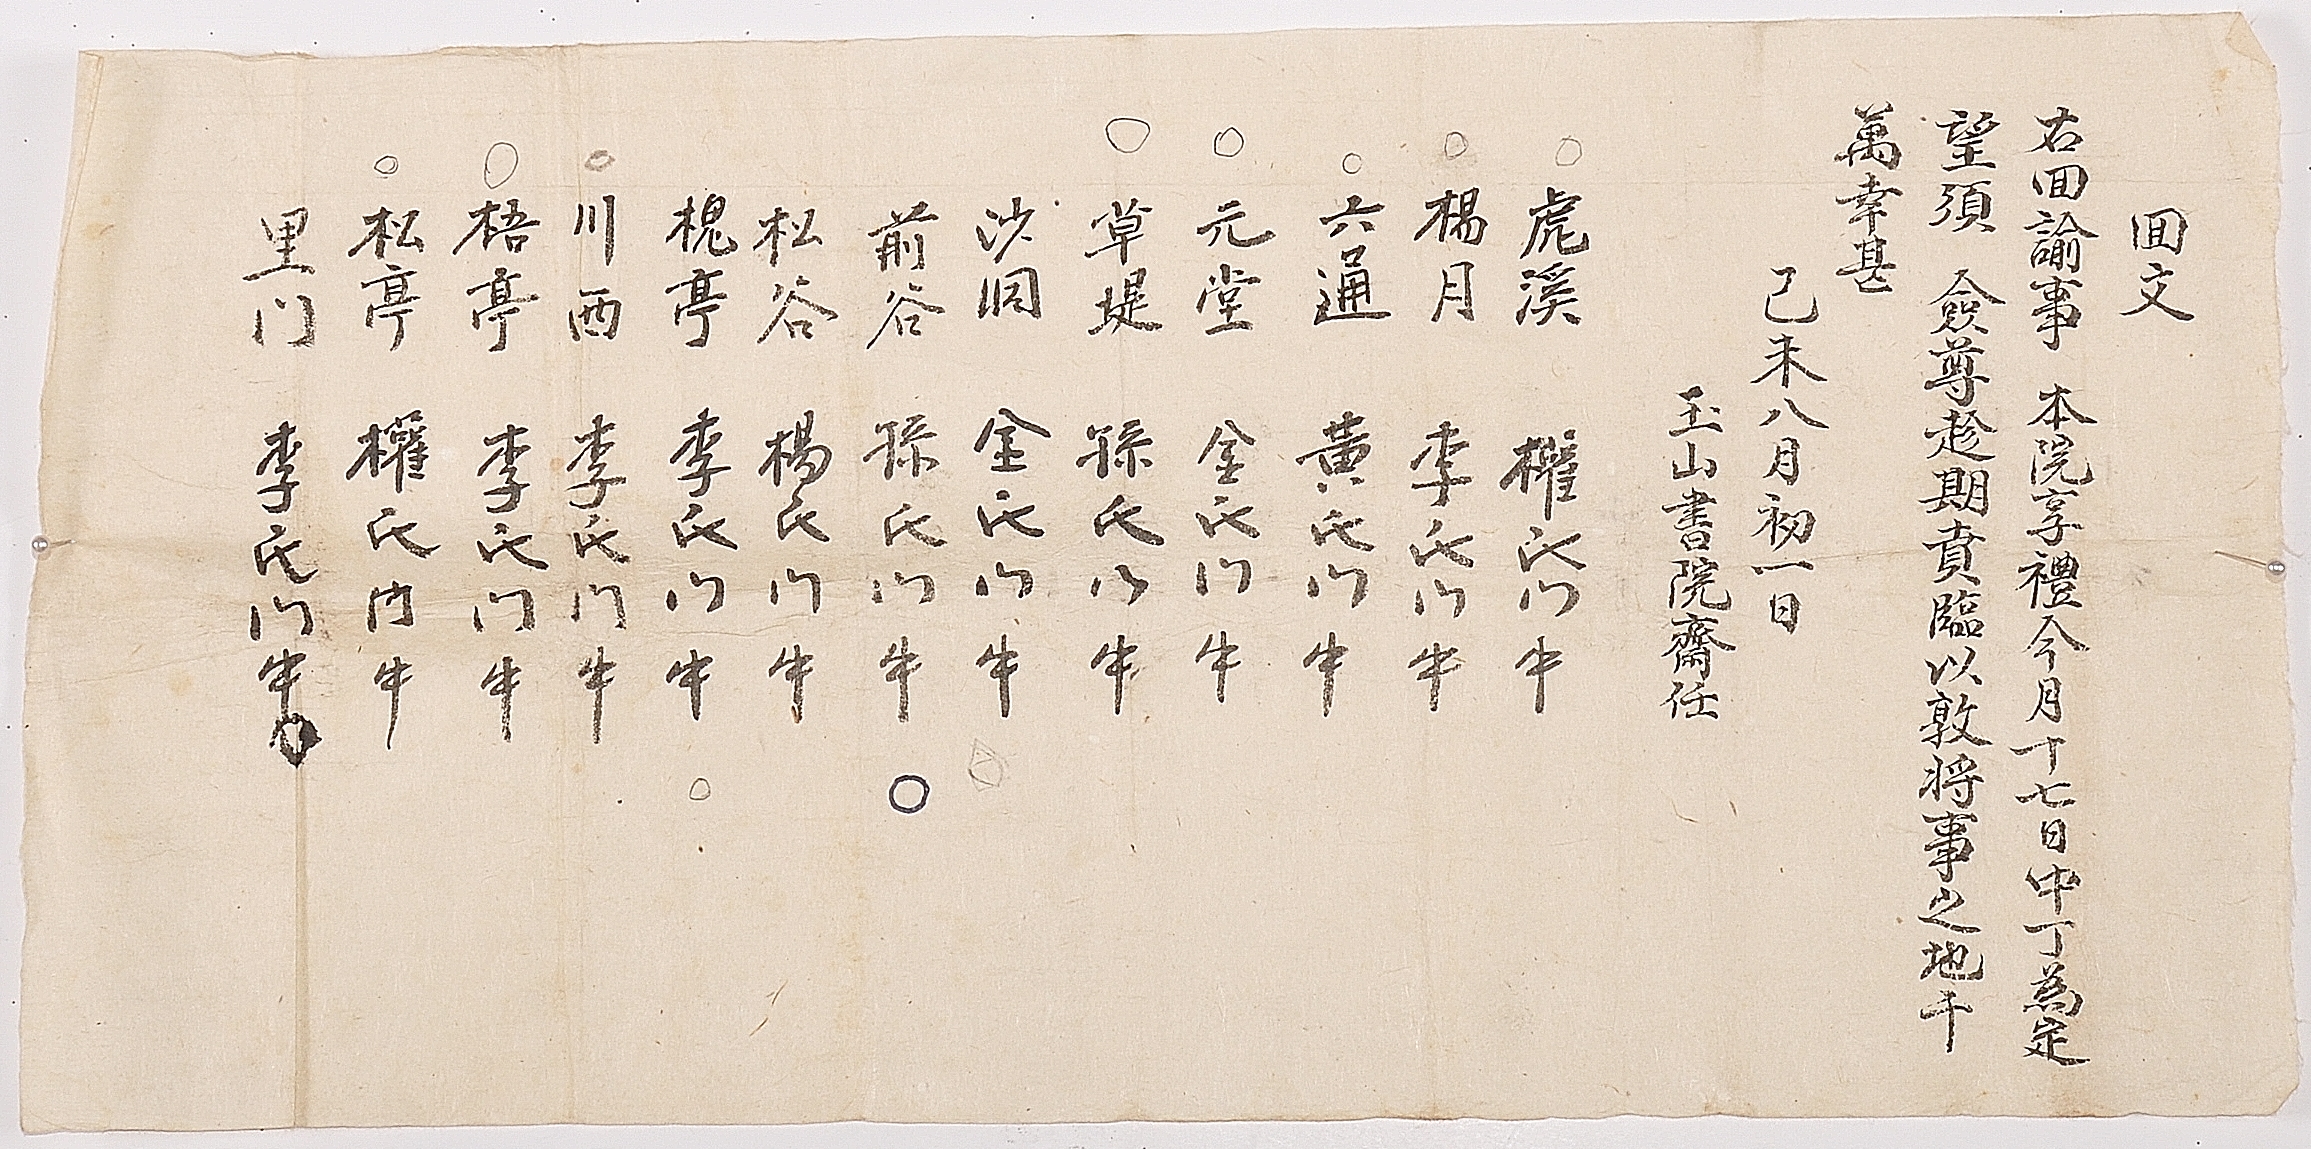 回文
右回諭事 本院享禮今月十七日中丁爲定
望須 僉尊趁期賁臨以敦將事之地千
萬幸甚
己未八月初一日
玉山書院齋任
虎溪 權氏門中
楊月 李氏門中
六通 黃氏門中
元堂 金氏門中
草堤 孫氏門中
沙洞 金氏門中
前谷 孫氏門中
松谷 楊氏門中
槐亭 李氏門中
川西 李氏門中
梧亭 李氏門中
松亭 權氏門中
里门 李氏門中